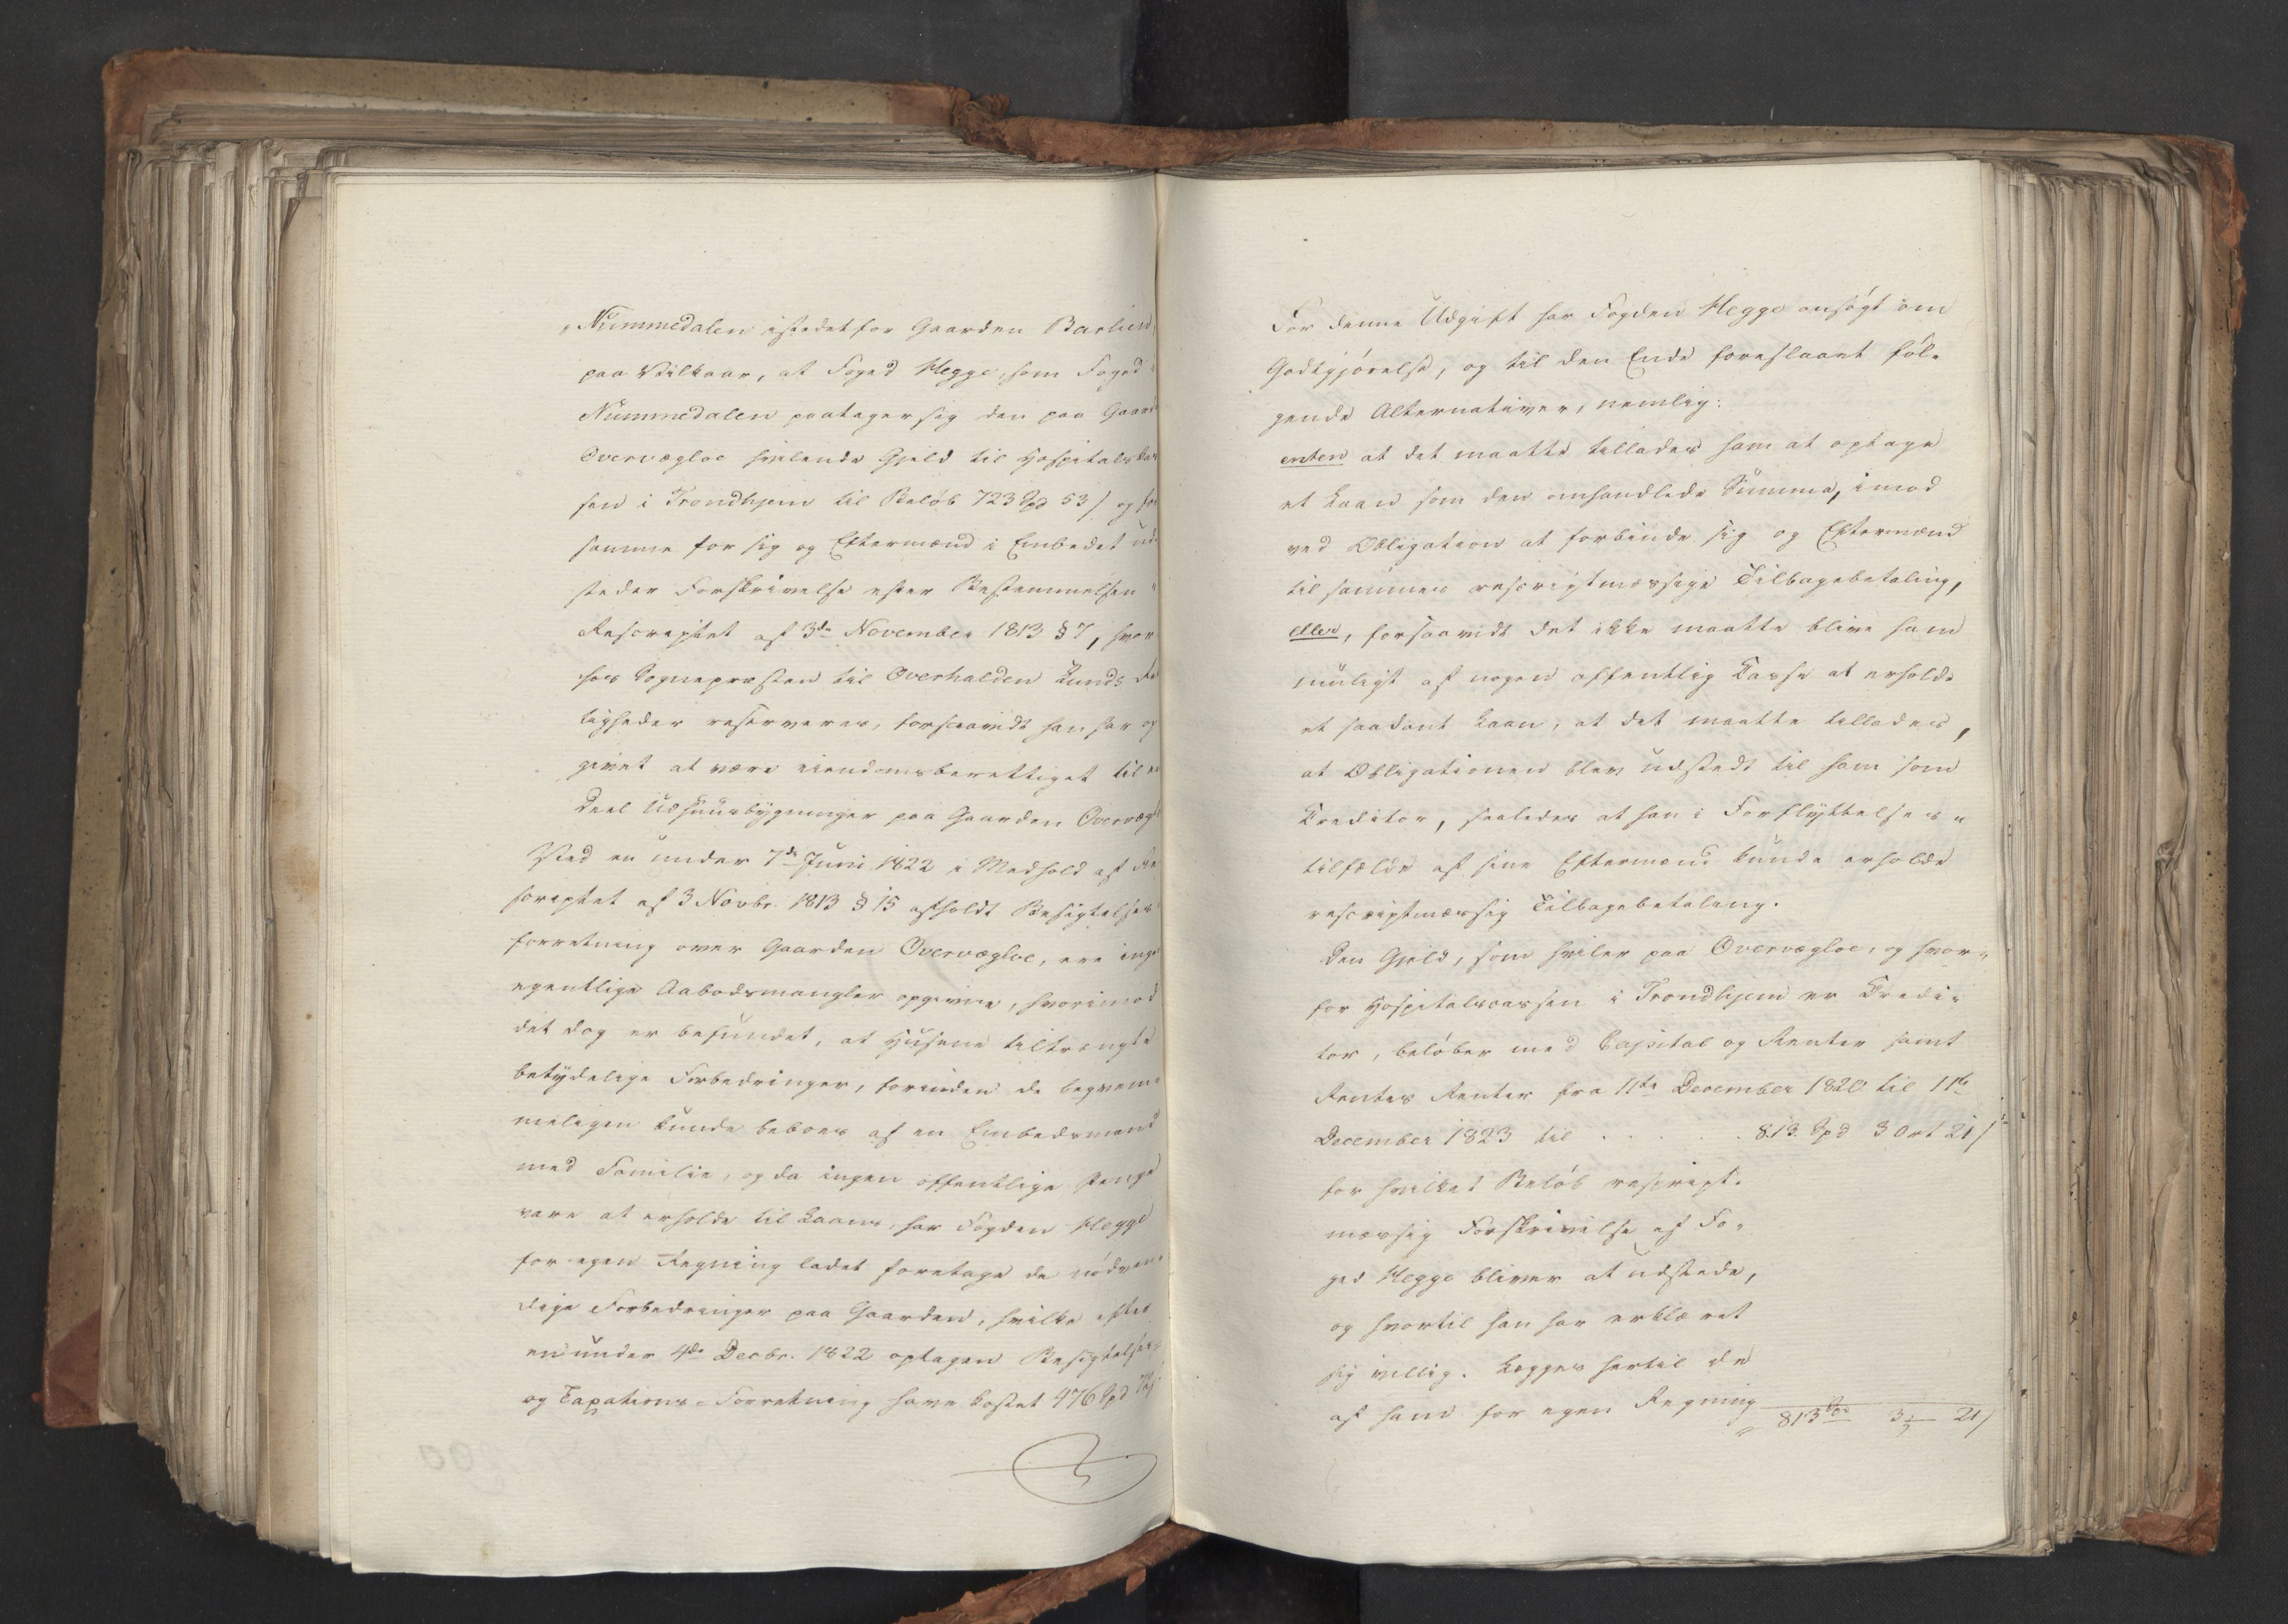 „Nummedalen istedetfor Gaarden Barlien
paa Vilkaar, at Foged Hegge, som Foged
Nummedalen paatager sig den paa Gaard
Overvægloe hvilende Gjeld til Hospitalskas
sen i Trondhjem til Beløb 723 Spd 53 / og for
samme for sig og Eftermænd i Embedet ud„
steder Forskrivelse efter Bestemmelsen
Rescriptet af 3de November 1813 § 7, hvor
hos Sognepræsten til Overhalden Lunds Ret
tigheder reserveres, forsaavidt han har op
givet at være eiendomsberettiget til en
Deel Udhuusbygninger paa Gaarden Overvægl
Ved en under 7de Juni 1822 i Medhold af Re
scriptet af 3 Novbr. 1813 § 15 afholdt Besigtelses
forretning over Gaarden Overvægloe, ere inge
egentlige Aabodsmangler opgivne, hvorimod
det dog er befundet, at Husene tiltrængte
betydelige Forbedringer, forinden de beqvem„
meligen kunde beboes af en Embedsmand
med Familie, og da ingen offentlige Penge
vare at erholde til Laans, har Fogden Hegge
for egen Regning ladet foretage de nødven„
dige Forbedringer paa Gaarden, hvilke efter
en under 4de Decbr. 1822 optagen Besigtelses„
og Taxations-Forretning have kostet 476 Spd
For denne Udgift har Fogden Hegge ansøgt om
Godtgjørelse, og til den Ende foreslaaet føl„
gende Alternativer, nemlig:
enten at det maatte tillades ham at optage
et Laan som den omhandlede Summa, imod
ved Obligation at forbinde sig og Eftermænd
til sammes rescriptmæssige Tilbagebetaling,
eller, forsaavidt det ikke maatte blive ham
muligt af nogen offentlig Casse at erholde
et saadant Laan, at det maatte tillades,
at Obligationen blev udstedt til ham som
Creditor, saaledes at han i Forflyttelses„
tilfælde af sine Eftermænd kunde erholde
rescriptmæssig Tilbagebetaling.
Den Gjeld, som hviler paa Overvægloe, og hvor„
for Hospitalscassen i Trondhjem er Credi„
tor, beløber med Capital og Renter samt
Rentes Renter fra 11te December 1820 til 11te
December 1823 til . . . . . . 813 Spd 3 Ort 21 /
for hvilket Beløb rescript„
mæssig Forskrivelse af Fo„
ged Hegge bliver at udstede,
og hvortil han har erklæret
sig villig. Lægges hertil de
af ham for egen Regning
813 Spd 3 21 /